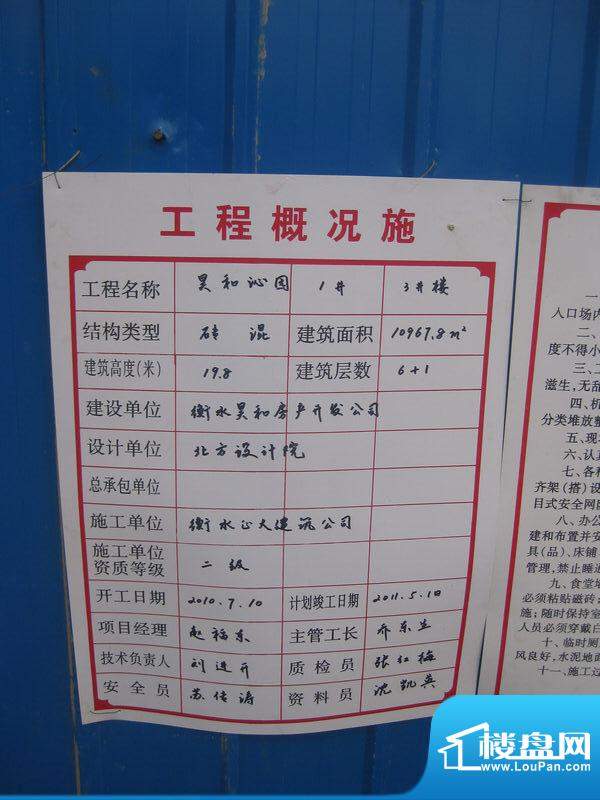 工程概况施
工程名称 昊和沁园 1# 3#楼
结构类型 砖混 建筑面积 10967.8m²
建筑高度(米) 19.8 建筑层数 6+1
建设单位 衡水昊和房产开发公司
设计单位 北方设计院
总承包单位
施工单位 衡水正大建筑公司
施工单位
资质等级 二级
开工日期 2010.7.10 计划竣工日期 2011.5.10
项目经理 赵福东 主管工长 乔东生
技术负责人 刘进升 质检员 张红梅
安全员 苏传涛 资料员 沈凯英
一
入口场内
二、
度不得小
三、工
滋生,无敌
四、机
分类堆放整
五、现
六、认真
七、各种
齐架(搭)设
目式安全网
八、办公
建和布置并安
具(品)、床铺
管理,禁止睡通
九、食堂
必须粘贴磁砖;
施;随时保持室
人员必须穿戴白
十、临时厕
风良好,水泥地面
十一、施工过
楼盘网
www.LouPan.com